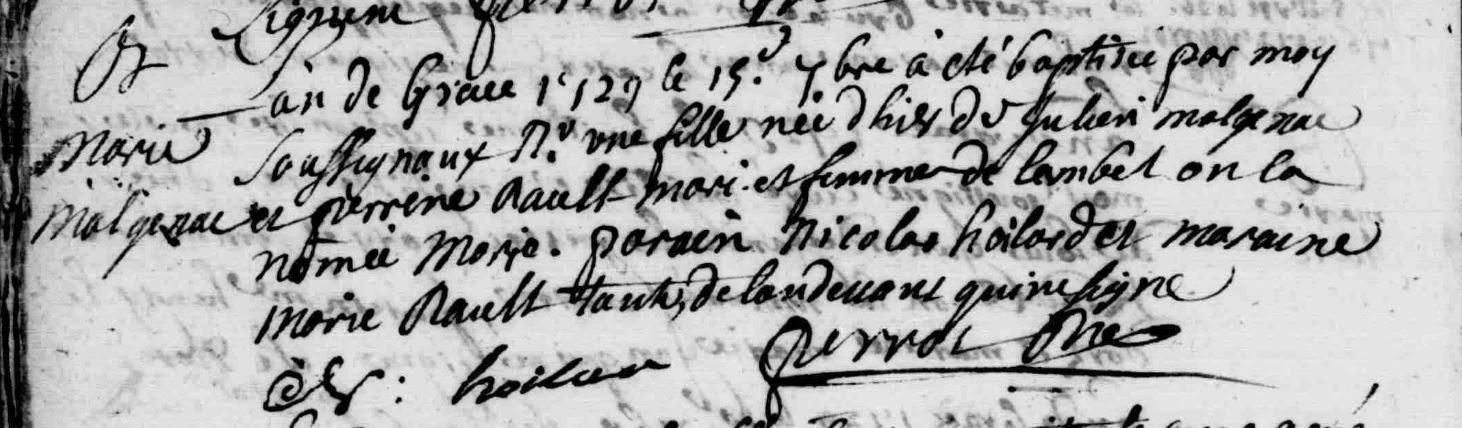 B
Marie
Malgenac
an de Grace 1729 le 15e 7bre à eté baptisée par moy
soussignaux Rr une fille née dhier de Julien malgenac
et perrine Rault mari et femme de lambel on la
nomée Marie. parain Nicolas hoilard et maraine
marie Rault tante, de landevant qui ne signe
perrot